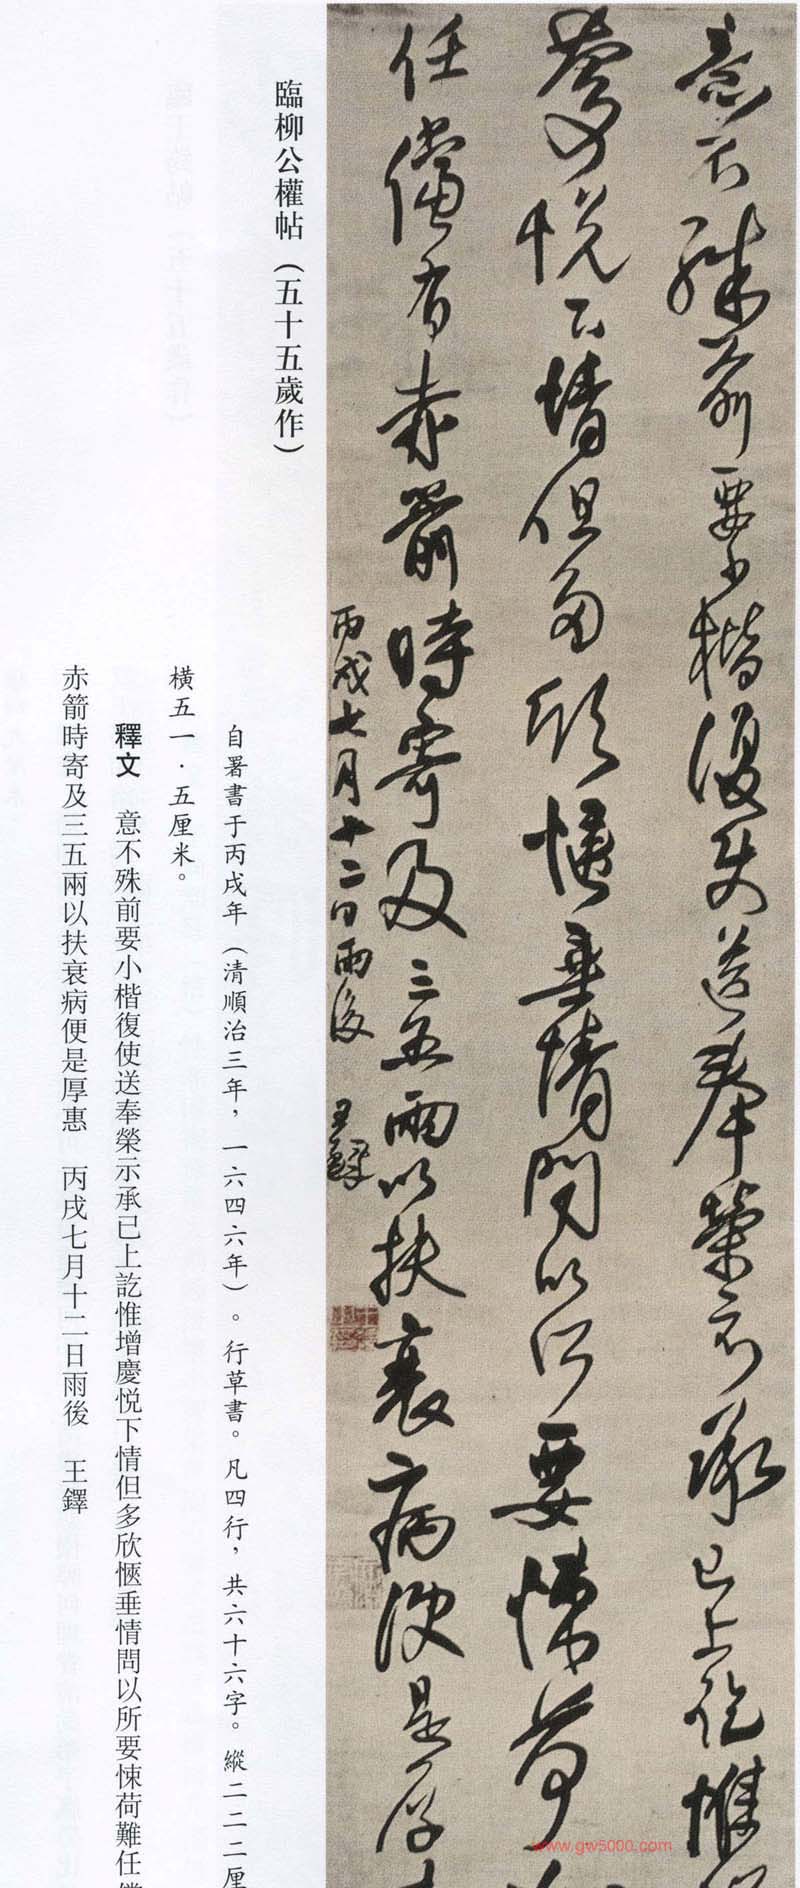 意不殊前要小楷復使送奉榮示承已上訖惟
慶悅下情但多欣愜垂情問以所要悚荷
任儻有赤箭時寄及三五兩以扶衰病便是厚
丙戌七月十二日雨後 王鐸
臨柳公權帖（五十五歲作）
自署書于丙戌年（清順治三年，一六四六年）。行草書。凡四行，共六十六字。縱二二二厘
橫五一·五厘米。
釋文 意不殊前要小楷復使送奉榮示承已上訖惟增慶悅下情但多欣愜垂情問以所要悚荷難任
赤箭時寄及三五兩以扶衰病便是厚惠 丙戌七月十二日雨後 王鐸
www.gw5000.com